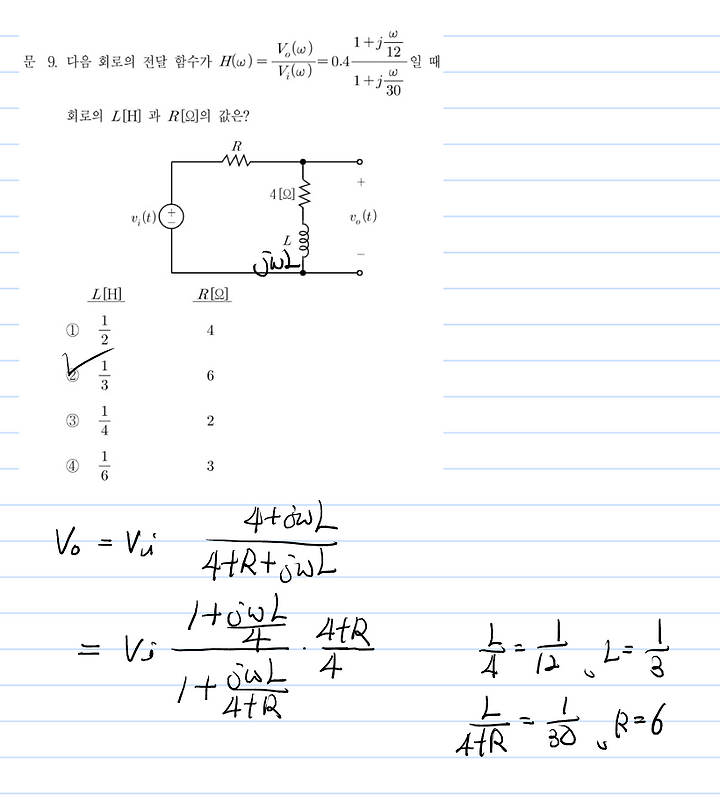 문 9. 다음 회로의 전달 함수가 H(ω) = V_o(ω)/V_i(ω) = 0.4 (1+j ω/12)/(1+j ω/30) 일 때
회로의 L[H] 과 R[Ω]의 값은?
R
4[Ω]
+
v_i(t)
+
−
v_o(t)
L
jωL
−
L[H] R[Ω]
① 1/2 4
② 1/3 6
③ 1/4 2
④ 1/6 3
V_o = V_i (4+jωL)/(4+R+jωL)
= V_i (1+jωL/4)/(1+jωL/(4+R)) · (4+R)/4
L/4 = 1/12, L = 1/3
L/(4+R) = 1/30, R=6